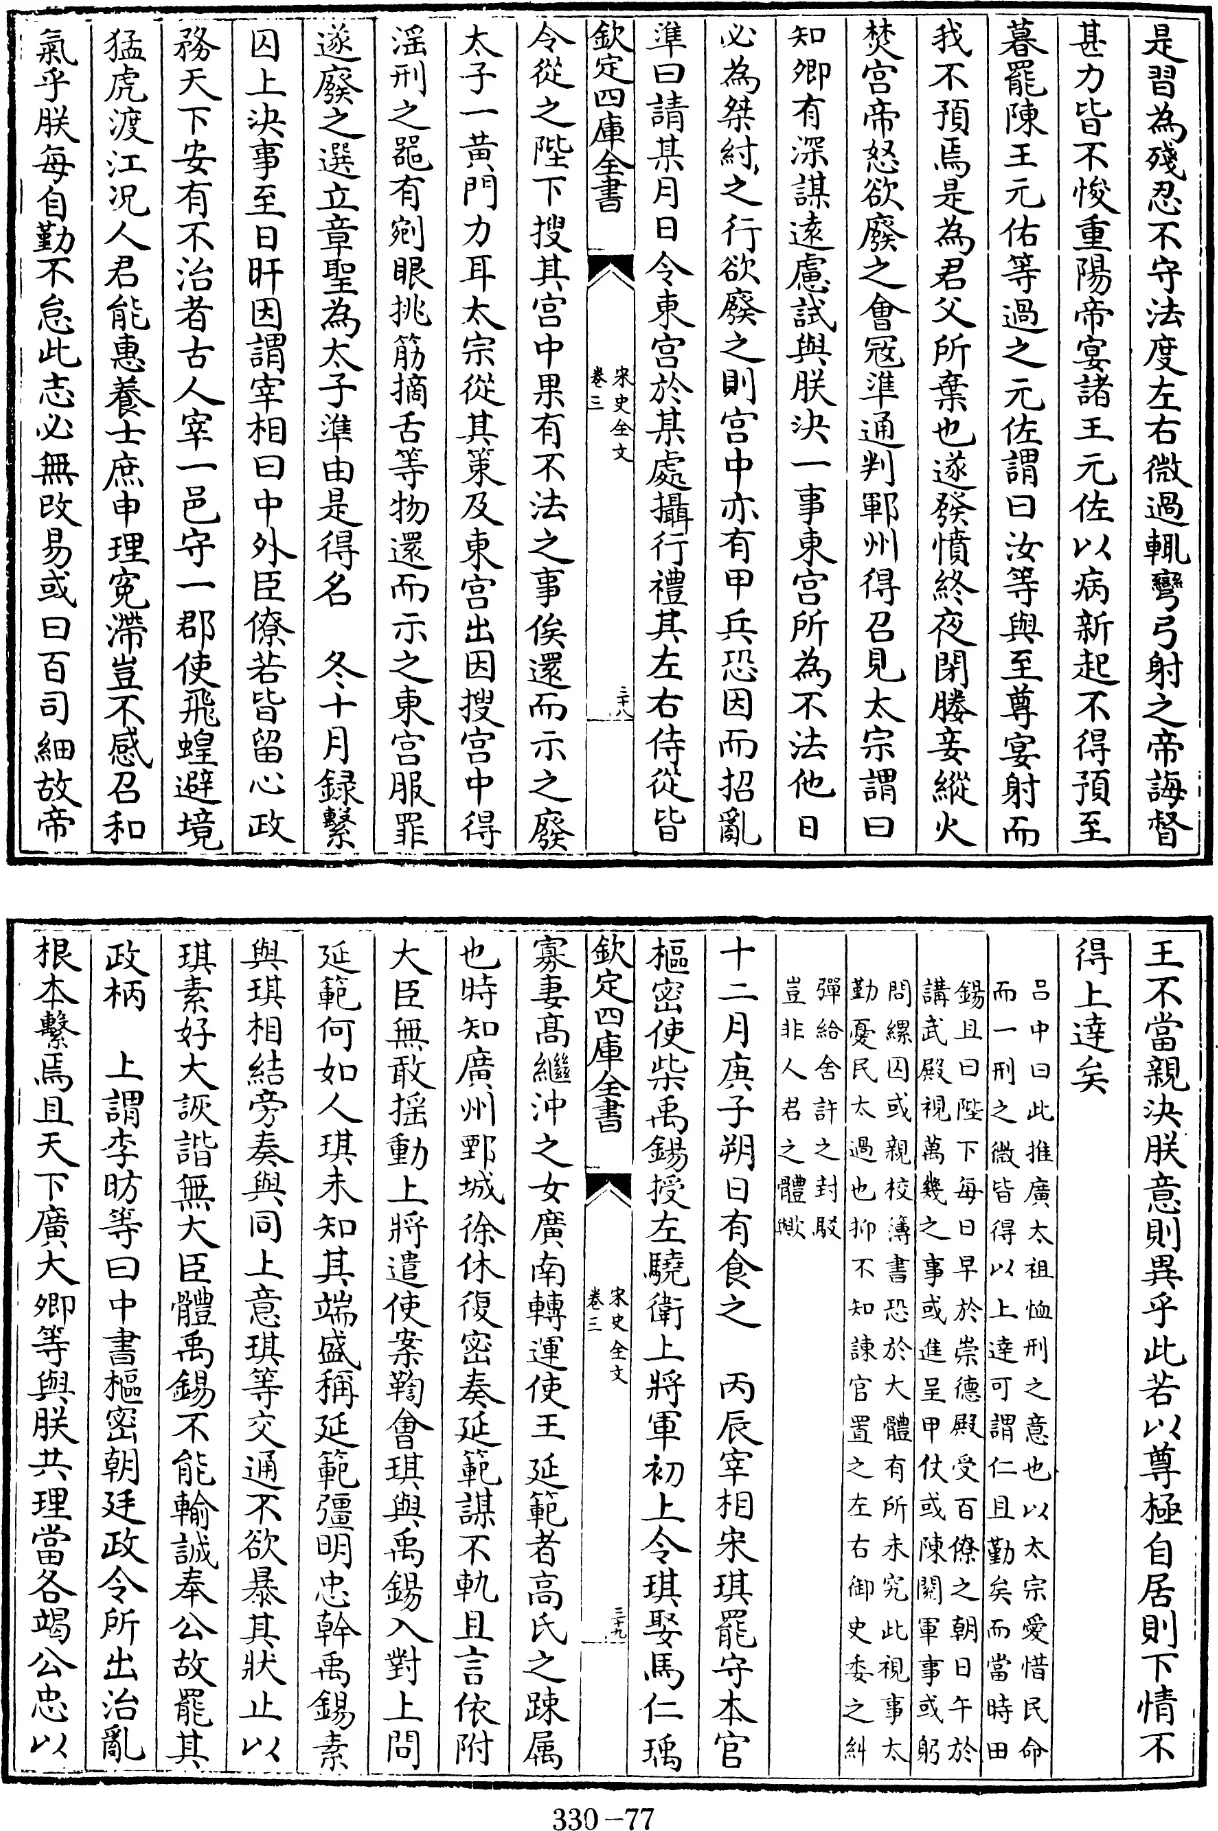 是習為殘忍不守法度左右微過輒彎弓射之帝誨督
甚力皆不悛重陽帝宴諸王元佐以病新起不得預至
暮罷陳王元佑等過之元佐謂曰汝等與至尊宴射而
我不預焉是為君父所棄也遂發憤終夜閉媵妾縱火
焚宮帝怒欲廢之會冦準通判鄆州得召見太宗謂曰
知卿有深謀遠慮試與朕決一事東宮所為不法他日
必為桀紂之行欲廢之則宮中亦有甲兵恐因而招亂
準曰請某月日令東宮於某處攝行禮其左右侍從皆
欽定四庫全書
宋史全文
卷三
三十八
令從之陛下搜其宮中果有不法之事俟還而示之廢
太子一黃門力耳太宗從其策及東宮出因搜宮中得
淫刑之噐有剜眼挑筋摘舌等物還而示之東宮服罪
遂廢之選立章聖為太子準由是得名　冬十月録繫
囚上決事至日旰因謂宰相曰中外臣僚若皆留心政
務天下安有不治者古人宰一邑守一郡使飛蝗避境
猛虎渡江况人君能惠養士庶申理寃滯豈不感召和
氣乎朕每自勤不怠此志必無改易或曰百司細故帝
王不當親決朕意則異乎此若以尊極自居則下情不
得上達矣
吕中曰此推廣太祖恤刑之意也以太宗愛惜民命
而一刑之微皆得以上達可謂仁且勤矣而當時田
錫且曰陛下每日早於崇德殿受百僚之朝日午於
講武殿視萬幾之事或進呈甲仗或陳閱軍事或躬
問縲囚或親校簿書恐於大體有所未究此視事太
勤憂民太過也抑不知諫官置之左右御史委之糾
彈給舍許之封駁
豈非人君之體歟
十二月庚子朔日有食之　丙辰宰相宋琪罷守本官
樞密使柴禹錫授左驍衛上將軍初上令琪娶馬仁瑀
欽定四庫全書
宋史全文
卷三
三十九
寡妻髙繼沖之女廣南轉運使王延範者高氏之踈属
也時知廣州鄄城徐休復密奏延範謀不軌且言依附
大臣無敢摇動上將遣使案鞫會琪與禹錫入對上問
延範何如人琪未知其端盛稱延範彊明忠幹禹錫素
與琪相結旁奏與同上意琪等交通不欲暴其狀止以
琪素好大詼諧無大臣體禹錫不能輸誠奉公故罷其
政柄　上謂李昉等曰中書樞密朝廷政令所出治亂
根本繫焉且天下廣大卿等與朕共理當各竭公忠以
330-77